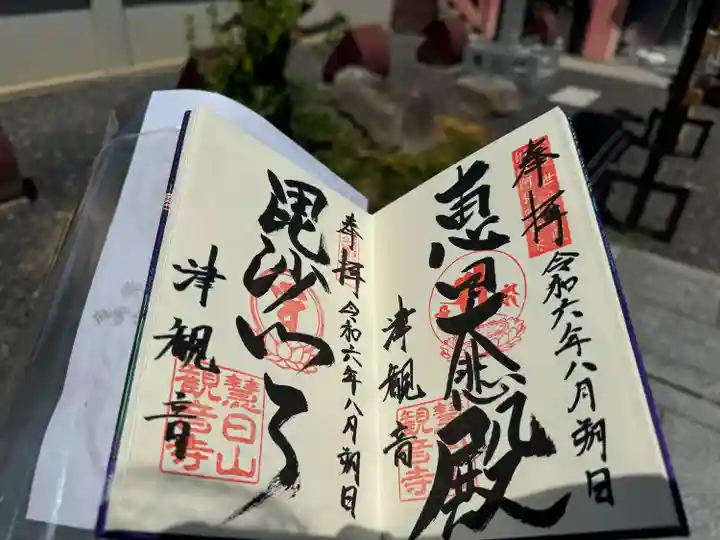 奉拝
令和六年八月朔日
恵日大悲殿
津観音
慧日山
観音寺
奉拝
令和六年八月朔日
毘沙門天
津観音
慧日山
観音寺